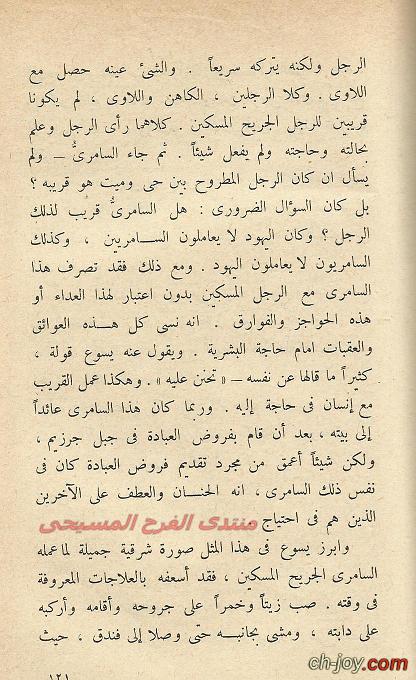 الرجل ولكنه يتركه سريعاً . والشئ عينه حصل مع
اللاوى . وكلا الرجلين ، الكاهن واللاوى ، لم يكونا
قريبين للرجل الجريح المسكين . كلاهما رأى الرجل وعلم
بحالته وحاجته ولم يفعل شيئاً . ثم جاء السامرىُّ — ولم
يسأل ان كان الرجل المطروح بين حى وميت هو قريبه ؟
بل كان السؤال الضرورى : هل السامرىُّ قريب لذلك
الرجل ؟ وكان اليهود لا يعاملون الســـامريين ، وكذلك
السامريون لا يعاملون اليهود . ومع ذلك فقد تصرف هذا
السامرى مع الرجل المسكين بدون اعتبار لهذا العداء أو
هذه الحواجز والفوارق . انه نسى كل هـــذه العوائق
والعقبات امام حاجة البشرية . ويقول عنه يسوع قولة ،
كثيراً ما قالها عن نفسه — « تحنن عليه » . وهكذا عمل القريب
مع إنسان فى حاجة إليه . وربما كان هذا السامرى عائداً
إلى بيته ، بعد أن قام بفروض العبادة فى جبل جرزيم ،
ولكن شيئاً أعمق من مجرد تقديم فروض العبادة كان فى
نفس ذلك السامرى ، انه الحنــان والعطف على الآخرين
الذين هم فى احتياج .
منتدى الفرح المسيحى
وابرز يسوع فى هذا المثل صورة شرقية جميلة لما عمله
السامرى الجريح المسكين ، فقد أسعفه بالعلاجات المعروفة
فى وقته . صب زيتاً وخمراً على جروحه وأقامه وأركبه
على دابته ، ومشى بجانبــه حتى وصلا إلى فندق ، حيث
١٢١
ch-joy.com